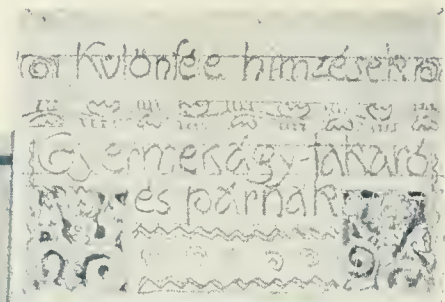 Külömféle hímzések
Gyermekágy-takaró
és párnák